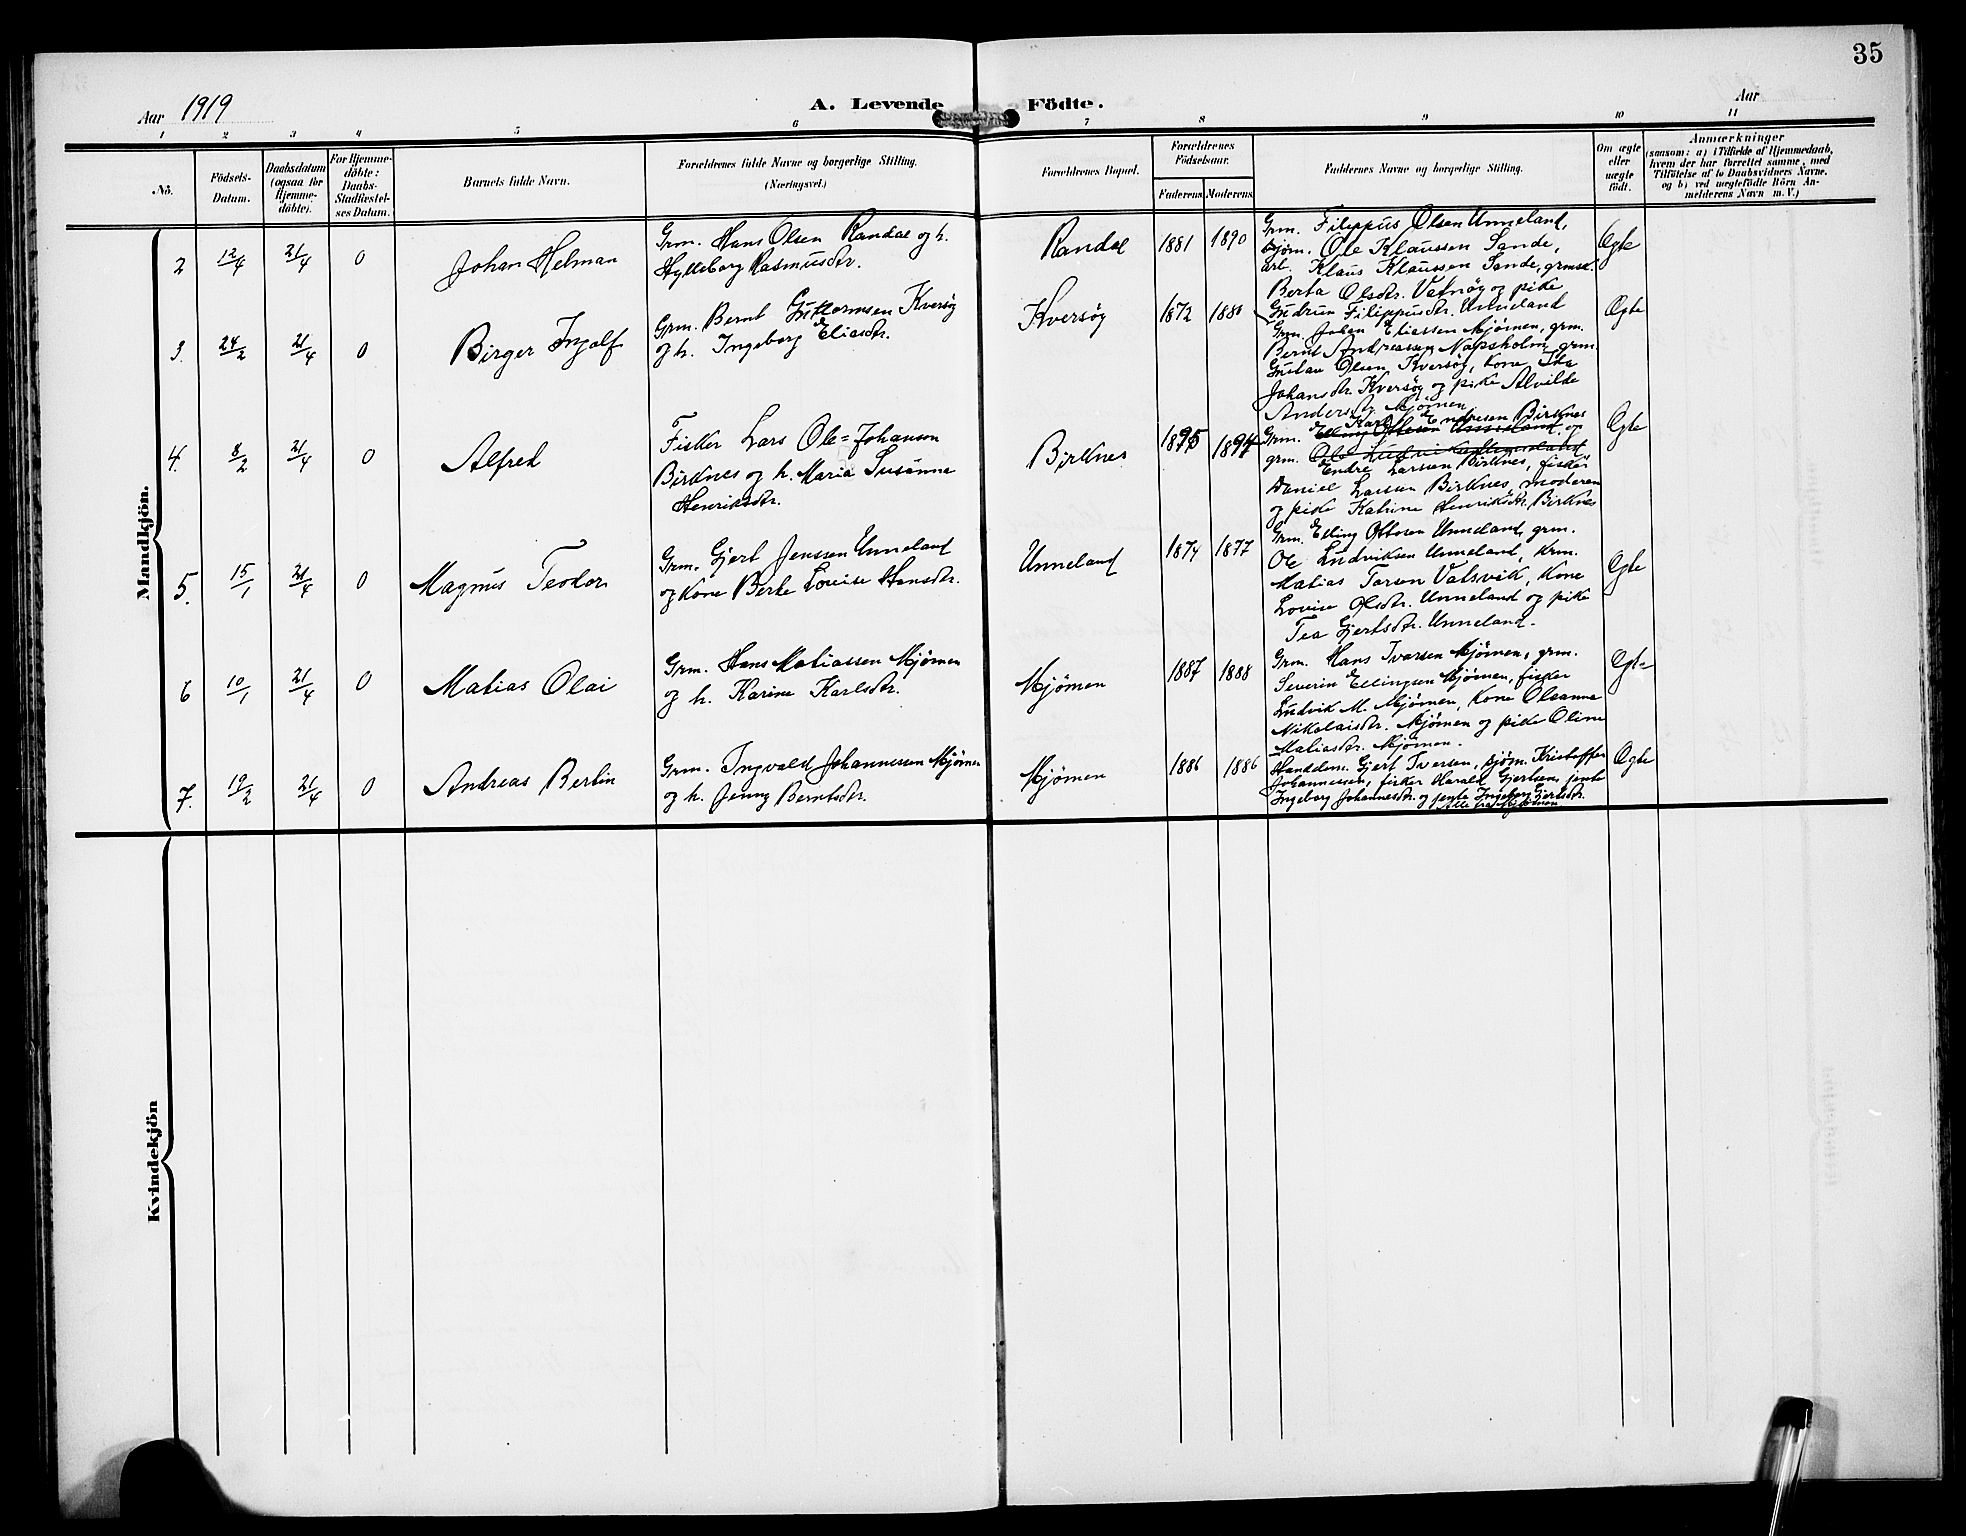 35
Aar 1919
A. Levende Födte.
Aar
1 2 3 4 5 6 7 8 9 10 11
No.
Födsels-Datum.
Daabsdatum (ogsaa for Hjemme-döbte).
For Hjemme-döbte: Daabs-Stadfæstel-ses Datum.
Barnets fulde Navn.
Forældrenes fulde Navne og borgerlige Stilling.
(Næringsvei.)
Forældrenes Bopæl.
Forældrenes Födselsaar.
Faderens Moderens
Faddernes Navne og borgerlige Stilling.
Om ægte eller uægte födt.
Anmærkninger
(saasom: a) i Tilfælde af Hjemmedaab,
hvem der har forrettet samme, med
Tilföielse af to Daabsvidners Navne.
og b) ved uægtefödte Börn An-
melderens Navn m. V.)
Mandkjön.
2 12/4 21/4 0 Johan Helman
Grm. Hans Olsen Randal og h.
Hylleborg Rasmusdtr.
Randal 1881 1890
Grm. Filippus Olsen Unneland,
bjørn. Ole Klaussen Sande,
arb. Klaus Klaussen Sande, grmsk.
Berta Olsdtr. Vatnøy og pike
Gudrun Filippusdtr. Unneland
Ægte
3. 24/2 21/4 0 Birger Ingolf
Grm. Bernt Guttormsen Kversøy
og h. Ingeborg Eliasdtr.
Kversøy 1872 1880
Grm. Johan Eliassen Mjømen, grm.
Bernt Andreassen Napsholm, grm.
Gustav Olsen Kversøy, Kone Ida
Johansdtr. Kversøy og pike Alvilde
Andersdtr. Mjømen
Ægte
4. 8/2 21/4 0 Alfred
Fisker Lars Ole=Johansen
Birknes og h. Maria Susanna
Henriksdtr.
Birknes 1895 1894
Karl Endresen Birknes
Grm. Elling Ottesen Unneland og
grm. Ole Ludviksen Unneland
Endre Larssen Birknes, fisker
Daniel Larsen Birknes, moderen
og pike Katrine Henriksdtr. Birknes
Ægte
5. 15/1 21/4 0 Magnus Teodor
Grm. Gjert Jenssen Unneland
og Kone Berte Lovise Hansdtr.
Unneland 1874 1877
Grm. Elling Ottosen Unneland, grm.
Ole Ludviksen Unneland, Krm.
Matias Tarsen Vatsvik, Kone
Lovise Olsdtr. Unneland og pike
Tea Gjertsdtr. Unneland.
Ægte
6 10/1 21/4 0 Matias Olai
Grm. Hans Matiassen Mjømen
og h. Karine Karlsdtr.
Mjømen 1887 1888
Grm. Hans Ivarsen Mjømen, grm.
Severin Ellingsen Mjømen, fisker
Ludvik M. Mjømen, Kone Oleanna
Nikolaisdtr. Mjømen og pike Oline
Matiasdtr. Mjømen.
Ægte
7. 19/2 21/4 0 Andreas Bertin
Grm. Ingvald Johannessen Mjømen
og h. Jenny Berntsdtr.
Mjømen 1886 1886
Handelsm. Gjert Iversen, sjøm. Kristoffer
Johannessen, fisker Harald Gjertsen, jente
Ingeborg Johannesdtr. og jente Ingeborg Gjertsdtr.
Alle fra Mjømen
Ægte
Kvindekjön